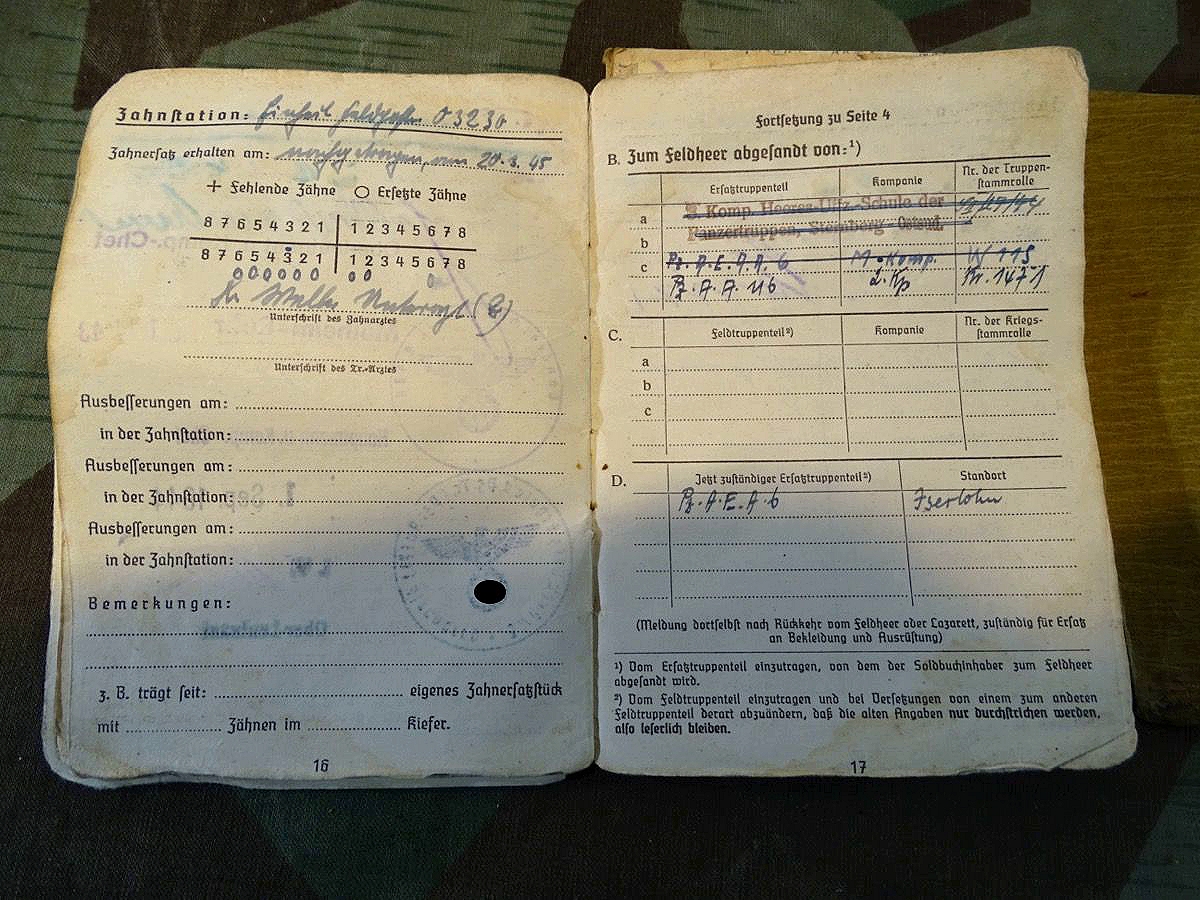 Zahnstation: Einheit Feldpostn. 03230
Zahnersatz erhalten am: 20.3.45
+ Fehlende Zähne O Ersetzte Zähne
8 7 6 5 4 3 2 1 | 1 2 3 4 5 6 7 8
8 7 6 5 4 3 2 1 | 1 2 3 4 5 6 7 8
Unterschrift des Zahnarztes
Unterschrift des Tr.-Arztes
Ausbesserungen am:
in der Zahnstation:
Ausbesserungen am:
in der Zahnstation:
Ausbesserungen am:
in der Zahnstation:
Bemerkungen:
z. B. trägt seit: eigenes Zahnersatzstück
mit Zähnen im Kiefer.
16
Fortsetzung zu Seite 4
B. Zum Feldheer abgesandt von:¹)
Ersatztruppenteil Kompanie Nr. der Truppen-
stammrolle
a 3. Komp. Heeres-Uffz.-Schule der
b Panzertruppen, Sternberg Ostsud.
c Pz. A. E. A. A. 6 M-Komp. W 115
Pz. A. A. 116 2. Kp Nr. 1471
C. Feldtruppenteil²) Kompanie Nr. der Kriegs-
stammrolle
a
b
c
D. Jetzt zuständiger Ersatztruppenteil²) Standort
Pz. A. E. A. 6 Iserlohn
(Meldung dortselbst nach Rückkehr vom Feldheer oder Lazarett, zuständig für Ersatz
an Bekleidung und Ausrüstung)
¹) Vom Ersatztruppenteil einzutragen, von dem der Soldbuchinhaber zum Feldheer
abgesandt wird.
²) Vom Feldtruppenteil einzutragen und bei Versetzungen von einem zum anderen
Feldtruppenteil derart abzuändern, daß die alten Angaben nur durchstrichen werden,
also leserlich bleiben.
17